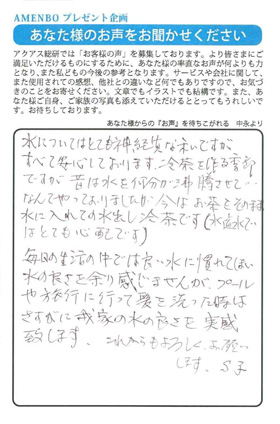 AMENBO プレゼント企画
あなた様のお声をお聞かせください
アクアス総研では「お客様の声」を募集しております。より皆さまにご
満足いただけるものにするために、あなた様の率直なお声が何よりも力
となり、また私どもの今後の参考となります。サービスや会社に関して、
また使用されての感想、他社との違いなど何でもありですので、お気づ
きのことをお寄せください。文章でもイラストでも結構です。また、あ
なた様ご自身、ご家族の写真も添えていただけるととってもうれしいで
す。お待ちしております。
あなた様からの『お声』を待ちこがれる 中永より
水についてはとても神経質な私ですが
すべて安心しております。冷茶を作る季節
ですが 昔は水を何分か沸騰させて…
なんてやっておりましたが今は お茶をそのまま
水に入れての水出し冷茶です(水道水で
はとても心配です)
毎日の生活の中では良い水に慣れてしまい
水の良さを余り感じませんが、プール
や旅行に行って髪を洗った時は
さすがに我家の水の良さを実感
致します。これからもよろしくお願い
します。S子